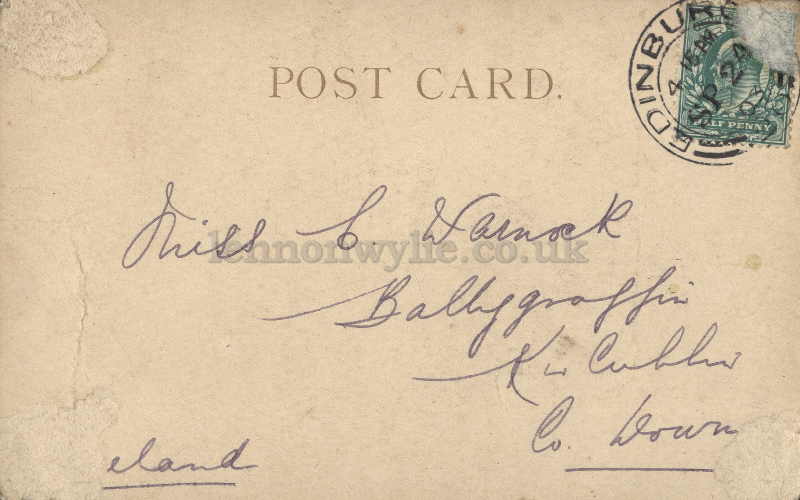 POST CARD.
EDINBURG
4 15 PM
SP 24
03
HALF PENNY
Miss C. Warnock
lennonwylie.co.uk
Ballygraffin
Kircubbin
Co. Down
eland